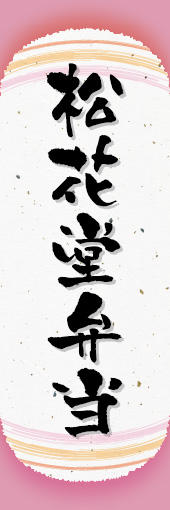 松花堂弁当